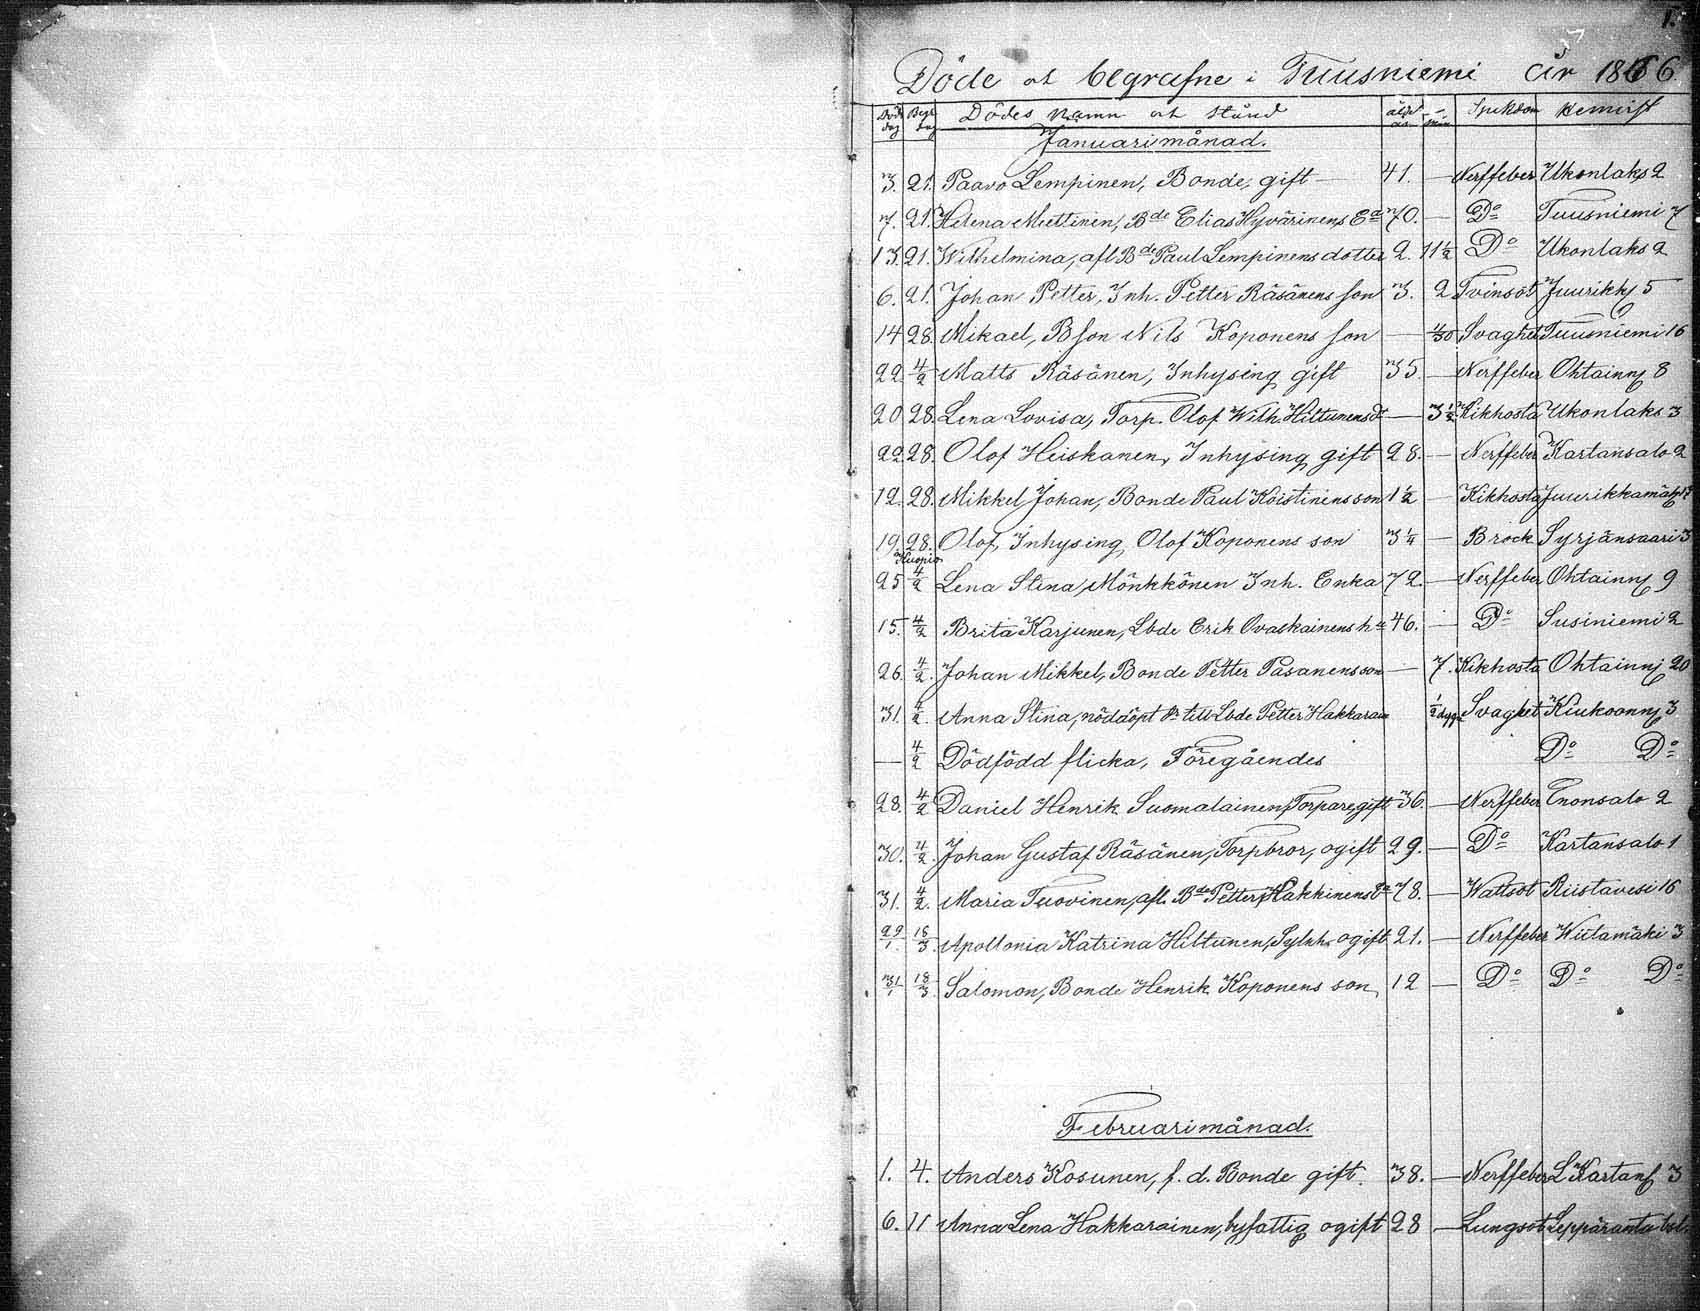 1.
Döde och begrafne i Tuusniemi år 1866
Död dag Begr. dag Dödes namn och stånd ålder år mån Sjukdom hemvist
Januari månad.
3. 21. Paavo Lempinen, Bonde, gift 41. — Nerffeber Ukonlaks 2
7. 21. Helena Miettinen, Bde Elias Hyvärinens Ea 70. — Do Tuusniemi 7
13. 21. Wilhelmina, afl. Bde Paul Lempinens dotter 2. 11½ Do Ukonlaks 2
6. 21. Johan Petter, Inh. Petter Räsänens son 3. 2 Tvinsot Juurikkj 5
14 28. Mikael, Bson Nils Koponens son — 4/30 Svaghet Tuusniemi 16
22. 4/2 Matts Räsänen, Inhysing gift 35. — Nerffeber Ohtainnj 8
20 28. Lena Lovisa, Torp. Olof Wilh. Hiltunens dr — 3½ Kikhosta Ukonlaks 3
22 28. Olof Heiskanen, Inhysing gift 28. — Nerffeber Kartansalo 2
12. 28. Mikkel Johan, Bonde Paul Koistinens son 1½ — Kikhosta Juurikkamäki 17
19 28. Olof, Inhysing Olof Koponens son 3¼ — Bråck Syrjänsaari 3
i Kuopio
25 4/2 Lena Stina Mönkkönen Inh. Enka 72. — Nerffeber Ohtainnj 9
15. 4/2 Brita Karjunen, Lbde Erik Ovaskainens ha 46. — Do Susiniemi 2
26. 4/2. Johan Mikkel, Bonde Petter Pasanens son — 7. Kikhosta Ohtainnj 20
31. 4/2. Anna Stina, nöddöpt dr till Lbde Petter Hakkarain ½ dygn Svaghet Kiukoonnj 3
— 4/2 Dödfödd flicka, Föregåendes Do Do
28. 4/2 Daniel Henrik Suomalainen, Torpare, gift 36. — Nerffeber Enonsalo 2
30. 4/2. Johan Gustaf Räsänen, Torpbror, ogift 29. — Do Kartansalo 1
31. 4/2. Maria Tuovinen, afl. Bde Petter Hakkinens Ea 78. — Wattsot Riistavesi 16
29/1. 18/3 Apollonia Katrina Hiltunen, Sytnh. ogift 21. — Nerffeber Wiitamäki 3
31/1 18/3. Salomon, Bonde Henrik Koponens son, 12 — Do Do Do
Februari månad.
1. 4. Anders Kosunen, f. d. Bonde gift. 38. — Nerffeber L Kartans 3
6. 11 Anna Lena Hakkarainen, byfattig ogift 28 — Lungsot Leppäranta